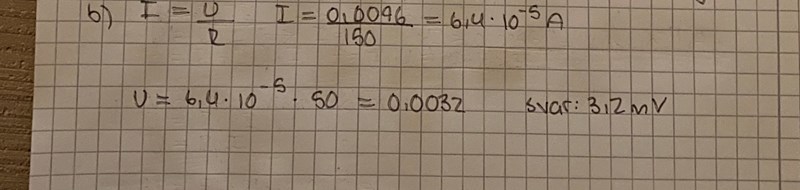 b) I = U/R I = 0,0096/150 = 6,4 · 10⁻⁵ A
U = 6,4 · 10⁻⁵ · 50 = 0,0032 svar: 3,2 mV